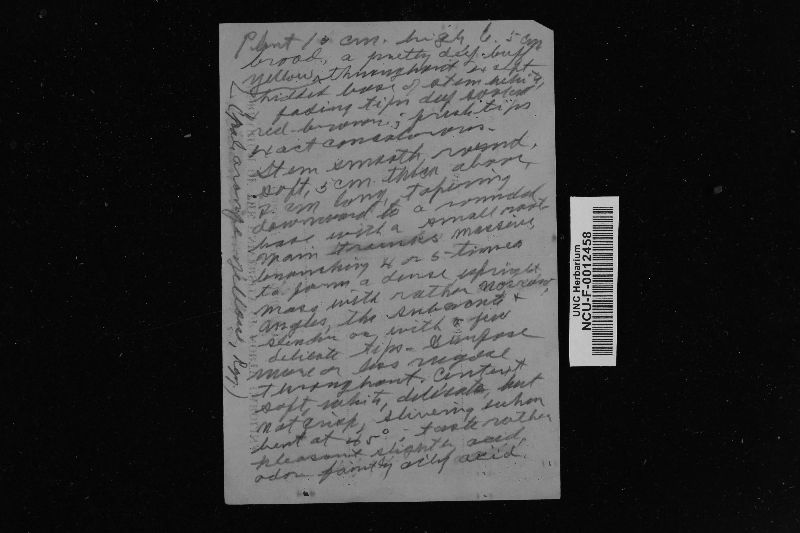 Plant 10 cm. high, 6.5 cm
broad, a pretty deep buff
yellow throughout except
hidden base of stem being
fading tips deep
red-brown; fresh tips
exact concolorous.
Stem smooth, round,
soft, 5 cm. thick above,
cm long, tapering
downward to a rounded
base with a small root
Main trunks massive,
branching 4 or 5 times
to form a dense upright
mass with rather narrow
angles, the
slender or with a few
delicate tips. Surface
more or less rugose
throughout. Context
soft, white, delicate, but
not crisp, slivering when
bent at 45°; taste rather
pleasant slightly acid,
odor faintly oily acid.
UNC Herbarium
NCU-F-0012458